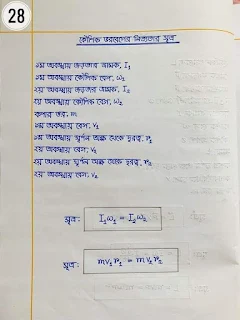 28
কৌণিক ভরবেগের নিত্যতার সূত্র
১ম অবস্থায় জড়তার ভ্রামক, I₁
১ম অবস্থায় কৌণিক বেগ, ω₁
২য় অবস্থায় জড়তার ভ্রামক, I₂
২য় অবস্থায় কৌণিক বেগ, ω₂
কণার ভর, m
১ম অবস্থায় বেগ, v₁
১ম অবস্থায় ঘূর্ণন অক্ষ থেকে দূরত্ব, r₁
২য় অবস্থায় বেগ, v₂
২য় অবস্থায় ঘূর্ণন অক্ষ থেকে দূরত্ব, r₂
২য় অবস্থায় বেগ, v₂
সূত্র : I₁ω₁ = I₂ω₂
সূত্র : mv₁r₁ = mv₂r₂